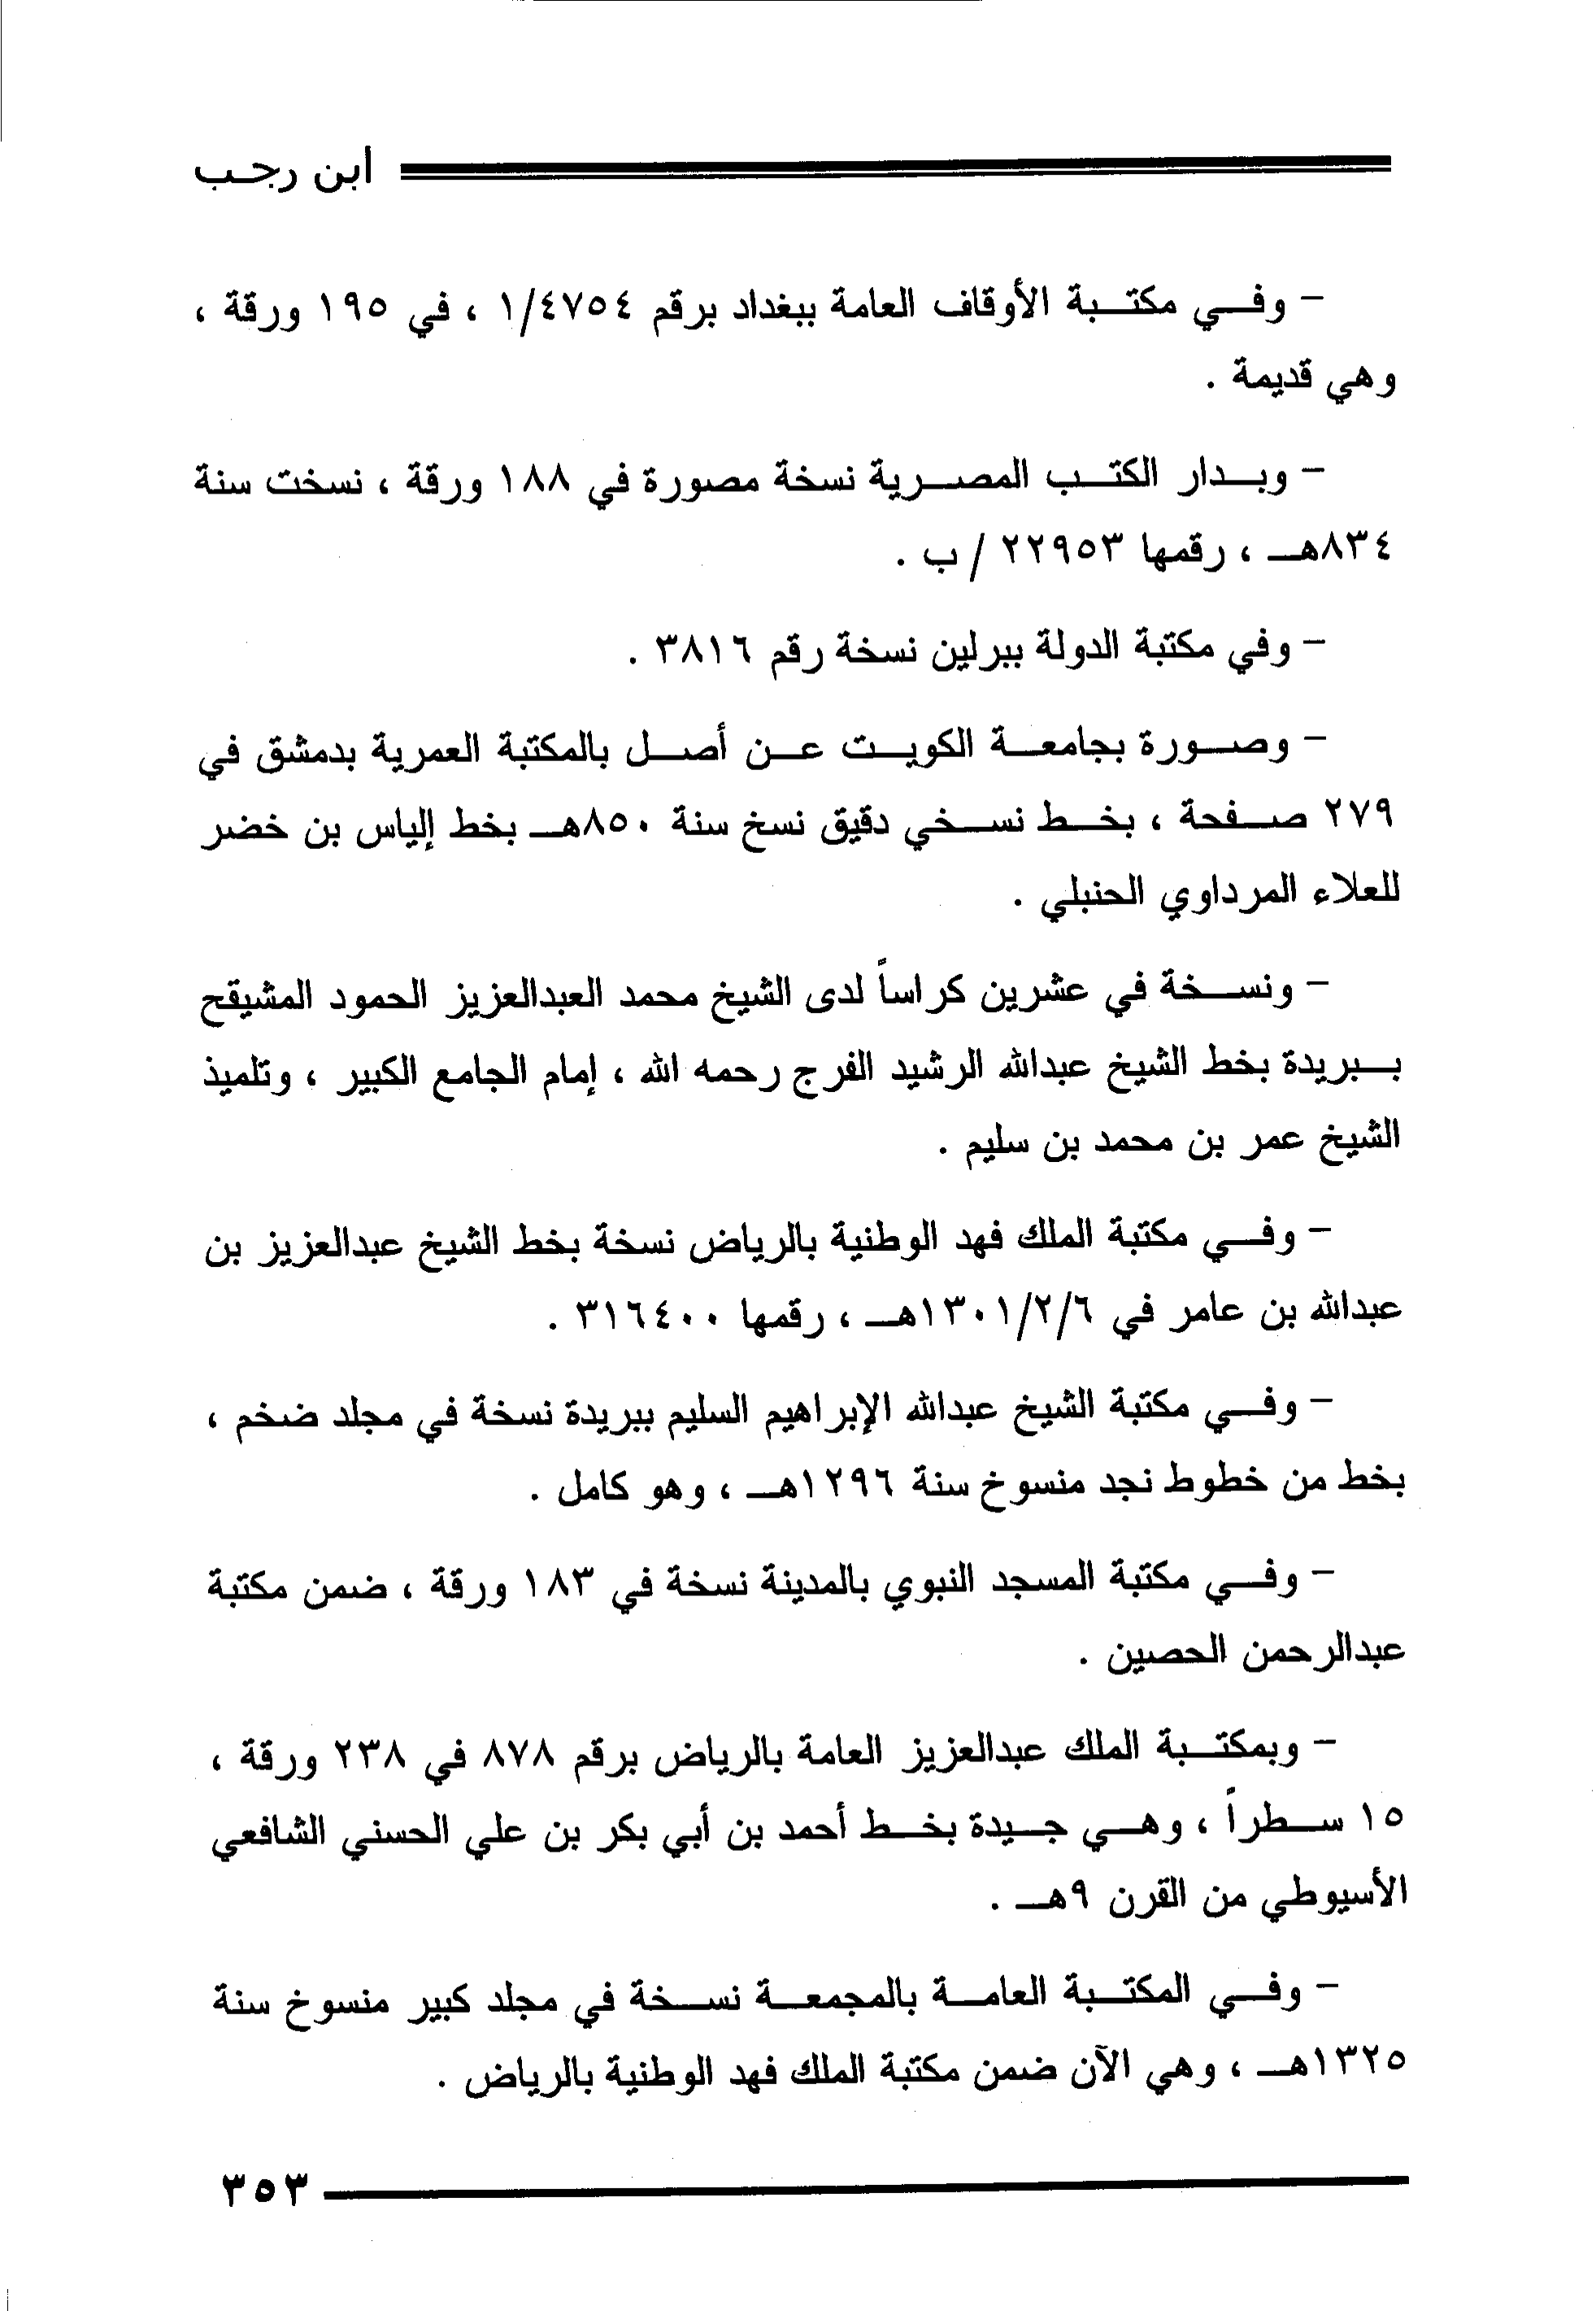 ابن رجب
- وفي مكتبة الأوقاف العامة ببغداد برقم ١/٤٧٥٤ ، في ١٩٥ ورقة ،
وهي قديمة .
- وبدار الكتب المصرية نسخة مصورة في ١٨٨ ورقة ، نسخت سنة
٨٣٤هـ ، رقمها ٢٢٩٥٣ / ب .
- وفي مكتبة الدولة ببرلين نسخة رقم ٣٨١٦ .
- وصورة بجامعة الكويت عن أصل بالمكتبة العمرية بدمشق في
٢٧٩ صفحة ، بخط نسخي دقيق نسخ سنة ٨٥٠هـ بخط إلياس بن خضر
للعلاء المرداوي الحنبلي .
- ونسخة في عشرين كراساً لدى الشيخ محمد العبدالعزيز الحمود المشيقح
ببريدة بخط الشيخ عبدالله الرشيد الفرج رحمه الله ، إمام الجامع الكبير ، وتلميذ
الشيخ عمر بن محمد بن سليم .
- وفي مكتبة الملك فهد الوطنية بالرياض نسخة بخط الشيخ عبدالعزيز بن
عبدالله بن عامر في ١٣٠١/٢/٦هـ ، رقمها ٣١٦٤٠٠ .
- وفي مكتبة الشيخ عبدالله الإبراهيم السليم ببريدة نسخة في مجلد ضخم ،
بخط من خطوط نجد منسوخ سنة ١٢٩٦هـ ، وهو كامل .
- وفي مكتبة المسجد النبوي بالمدينة نسخة في ١٨٣ ورقة ، ضمن مكتبة
عبدالرحمن الحصين .
- وبمكتبة الملك عبدالعزيز العامة بالرياض برقم ٨٧٨ في ٢٣٨ ورقة ،
١٥ سطراً ، وهي جيدة بخط أحمد بن أبي بكر بن علي الحسني الشافعي
الأسيوطي من القرن ٩هـ .
- وفي المكتبة العامة بالمجمعة نسخة في مجلد كبير منسوخ سنة
١٣٢٥هـ ، وهي الآن ضمن مكتبة الملك فهد الوطنية بالرياض .
٣٥٣